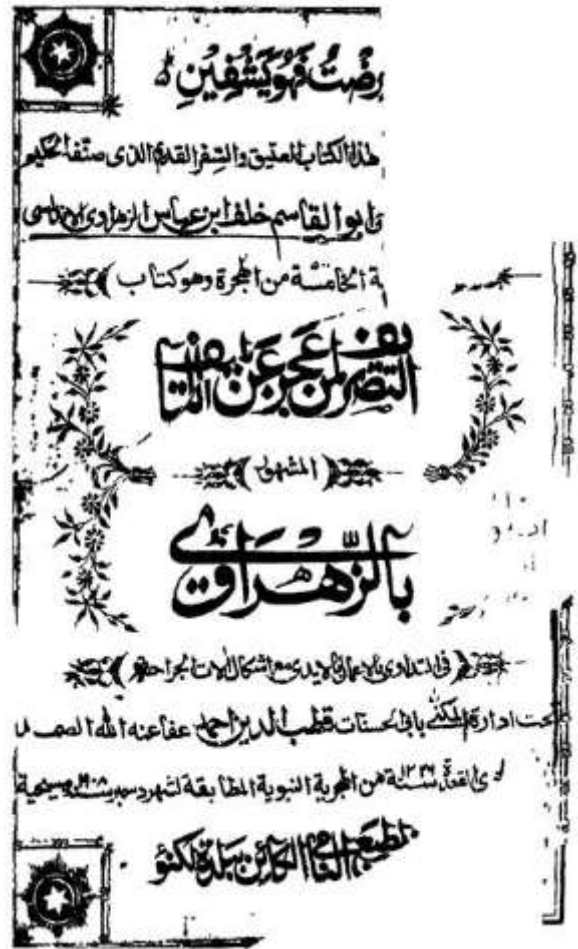 رضت فهو يشفين
هذا الكتاب العتيق والسفر القديم الذى صنفه الحكيم
ابو القاسم خلف ابن عباس الزهراوى الاندلسى
ة الخامسة من الهجرة وهو كتاب
التصريف لمن عجز عن التاليف
المشهور
بالزهراوى
فى التداوى بالاعمال بالايدى مع اشكال الالات الجراحية
تحت ادارة المكنى بابى الحسنات قطب الدين احمد عفا عنه الله الصمد
ى القعدة سنة ١٣٢٦ من الهجرية النبوية المطابقة لشهر دسمبر سنة ١٩٠٨ مسيحية
بالمطبع النامى الكائن ببلدة لكنؤ